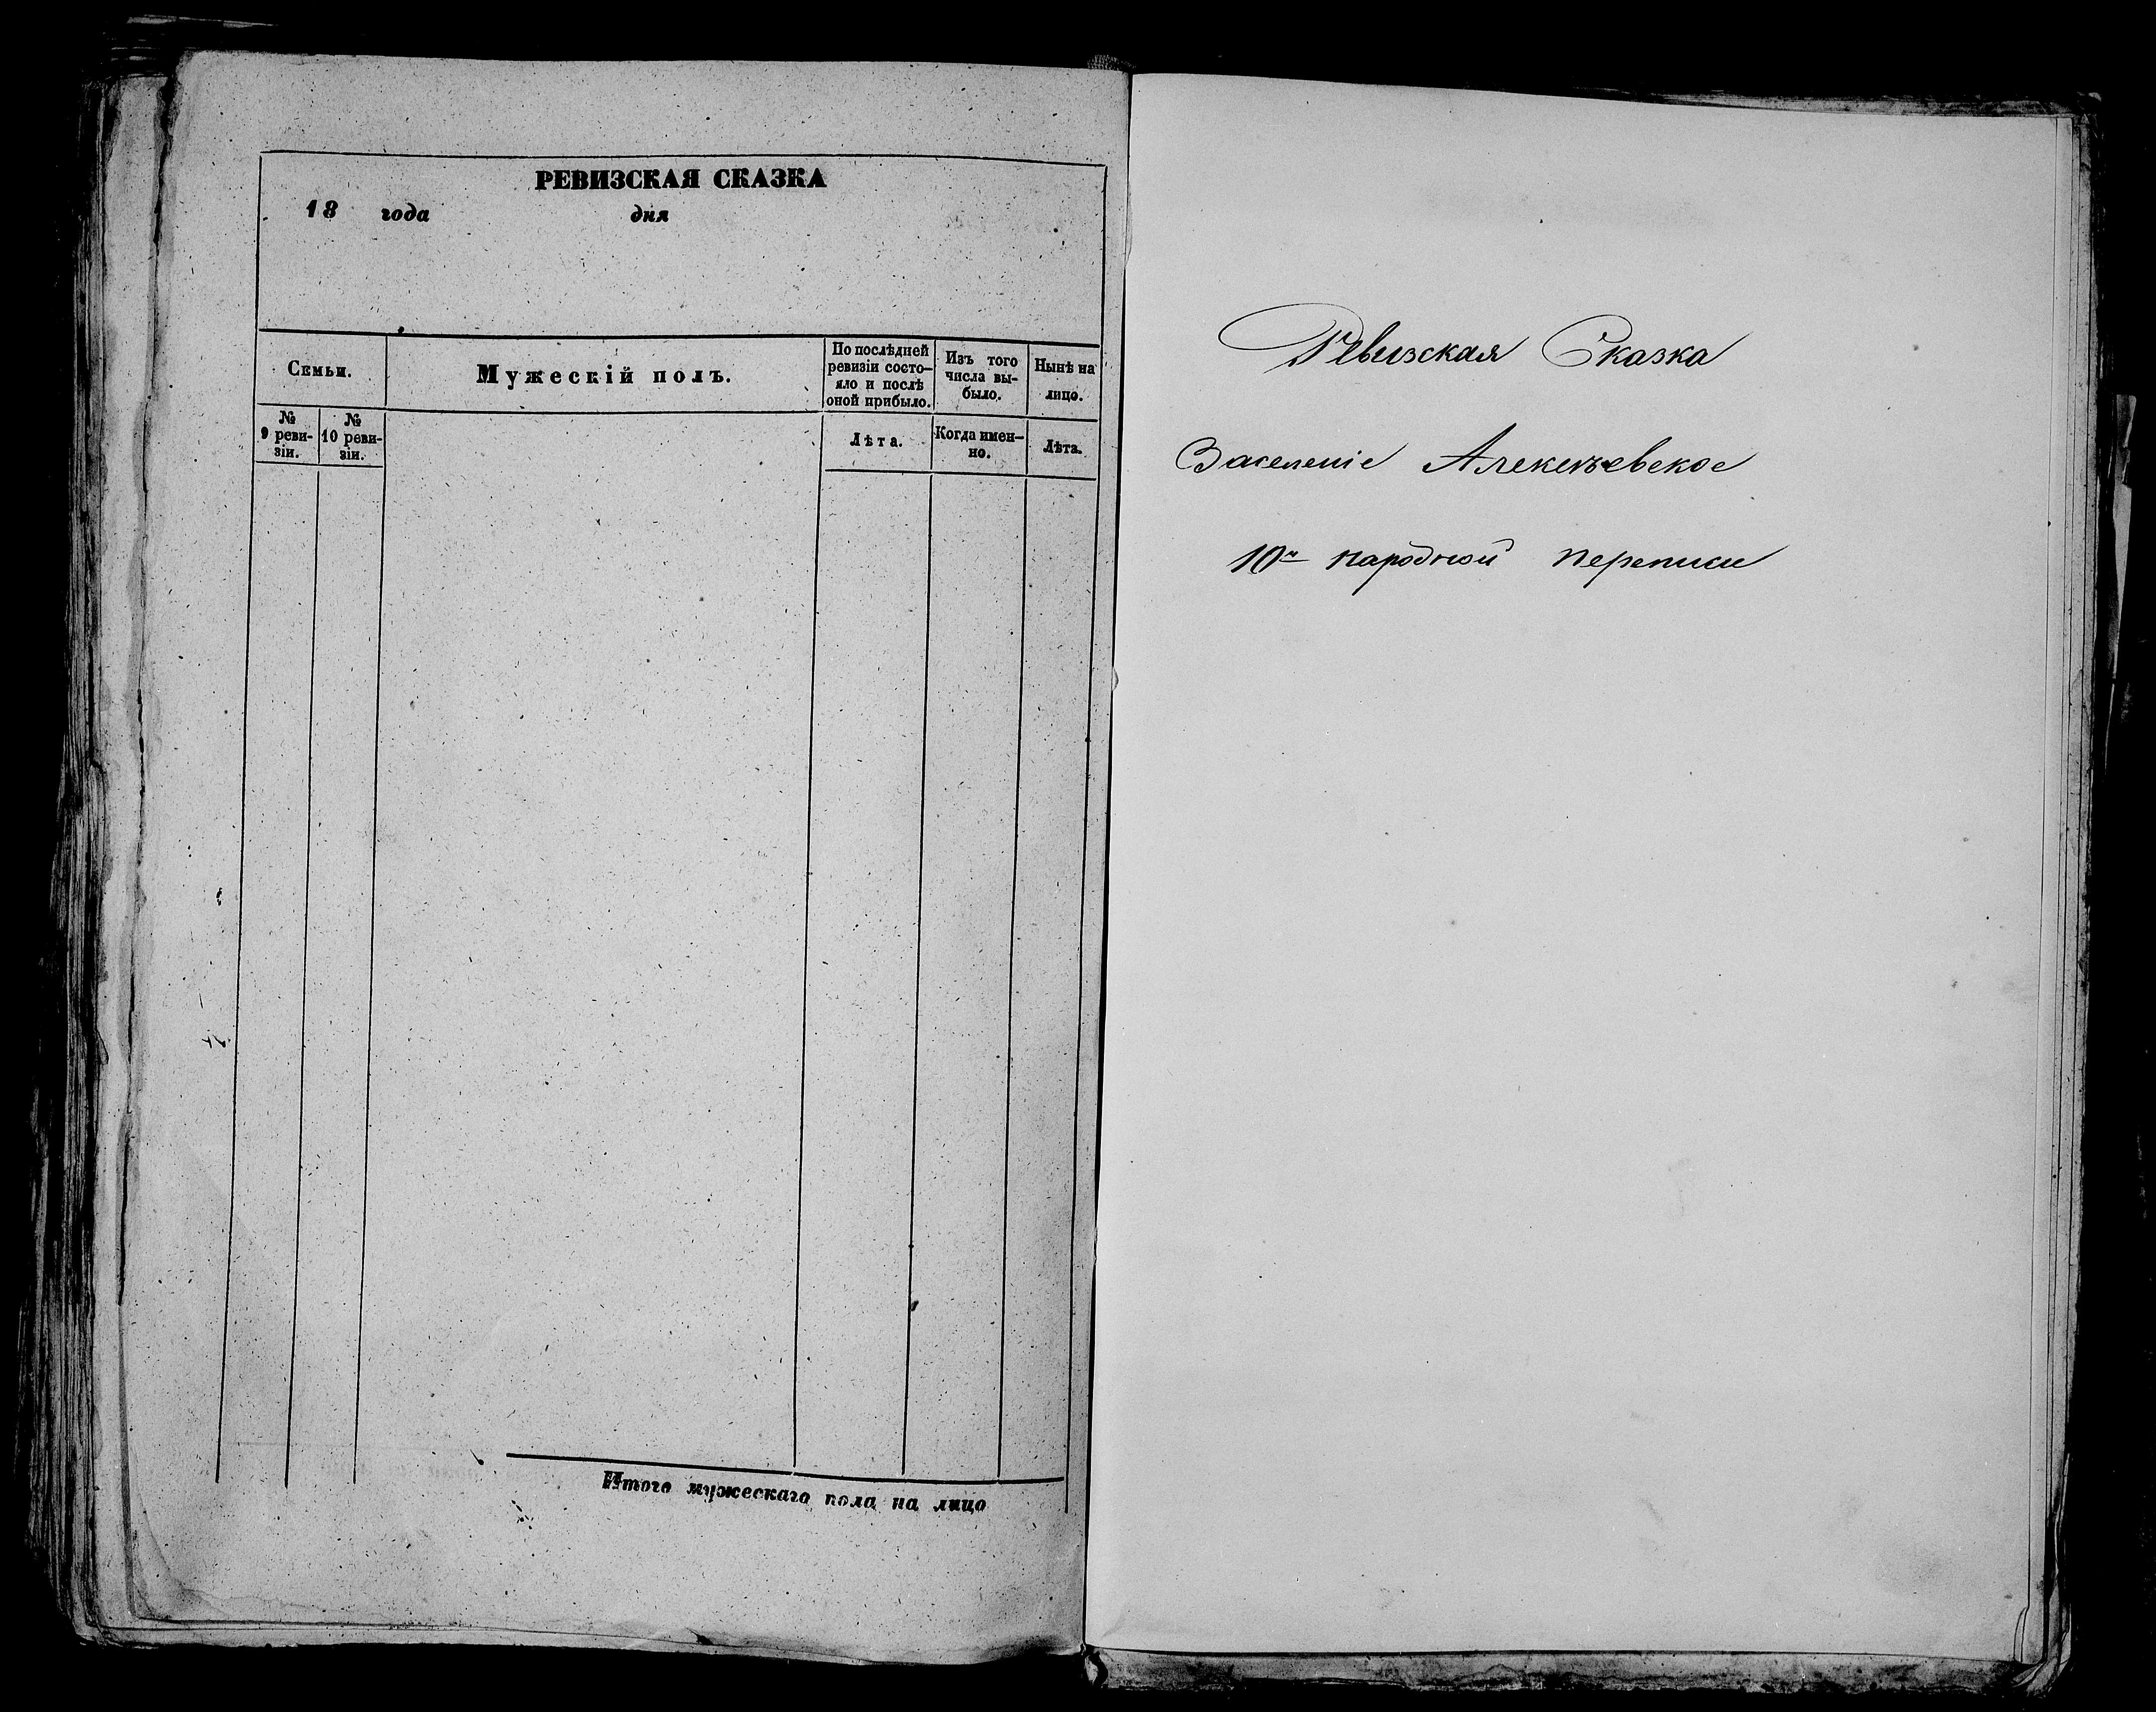 РЕВИЗСКАЯ СКАЗКА
18 года дня
Семьи.
Мужескій полъ.
По послѣдней
ревизіи состо-
яло и послѣ
оной прибыло.
Изъ того
числа вы-
было.
Нынѣ на
лицо.
№
9 реви-
зіи.
№
10 реви-
зіи.
Лѣта.
Когда имен-
но.
Лѣта.
Итого мужескаго пола на лицо
Ревизская Сказка
Заселеніе Алексѣевское
10й народной переписи